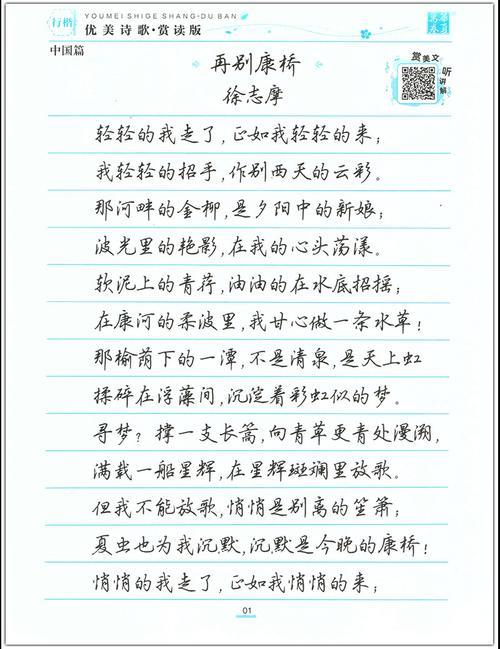 行楷
YOUMEI SHIGE SHANG·DU BAN
优美诗歌·赏读版
中国篇
赏美文
听讲解
再别康桥
徐志摩
轻轻的我走了,正如我轻轻的来;
我轻轻的招手,作别西天的云彩。
那河畔的金柳,是夕阳中的新娘;
波光里的艳影,在我的心头荡漾。
软泥上的青荇,油油的在水底招摇;
在康河的柔波里,我甘心做一条水草!
那榆荫下的一潭,不是清泉,是天上虹
揉碎在浮藻间,沉淀着彩虹似的梦。
寻梦?撑一支长篙,向青草更青处漫溯,
满载一船星辉,在星辉斑斓里放歌。
但我不能放歌,悄悄是别离的笙箫;
夏虫也为我沉默,沉默是今晚的康桥!
悄悄的我走了,正如我悄悄的来;
01